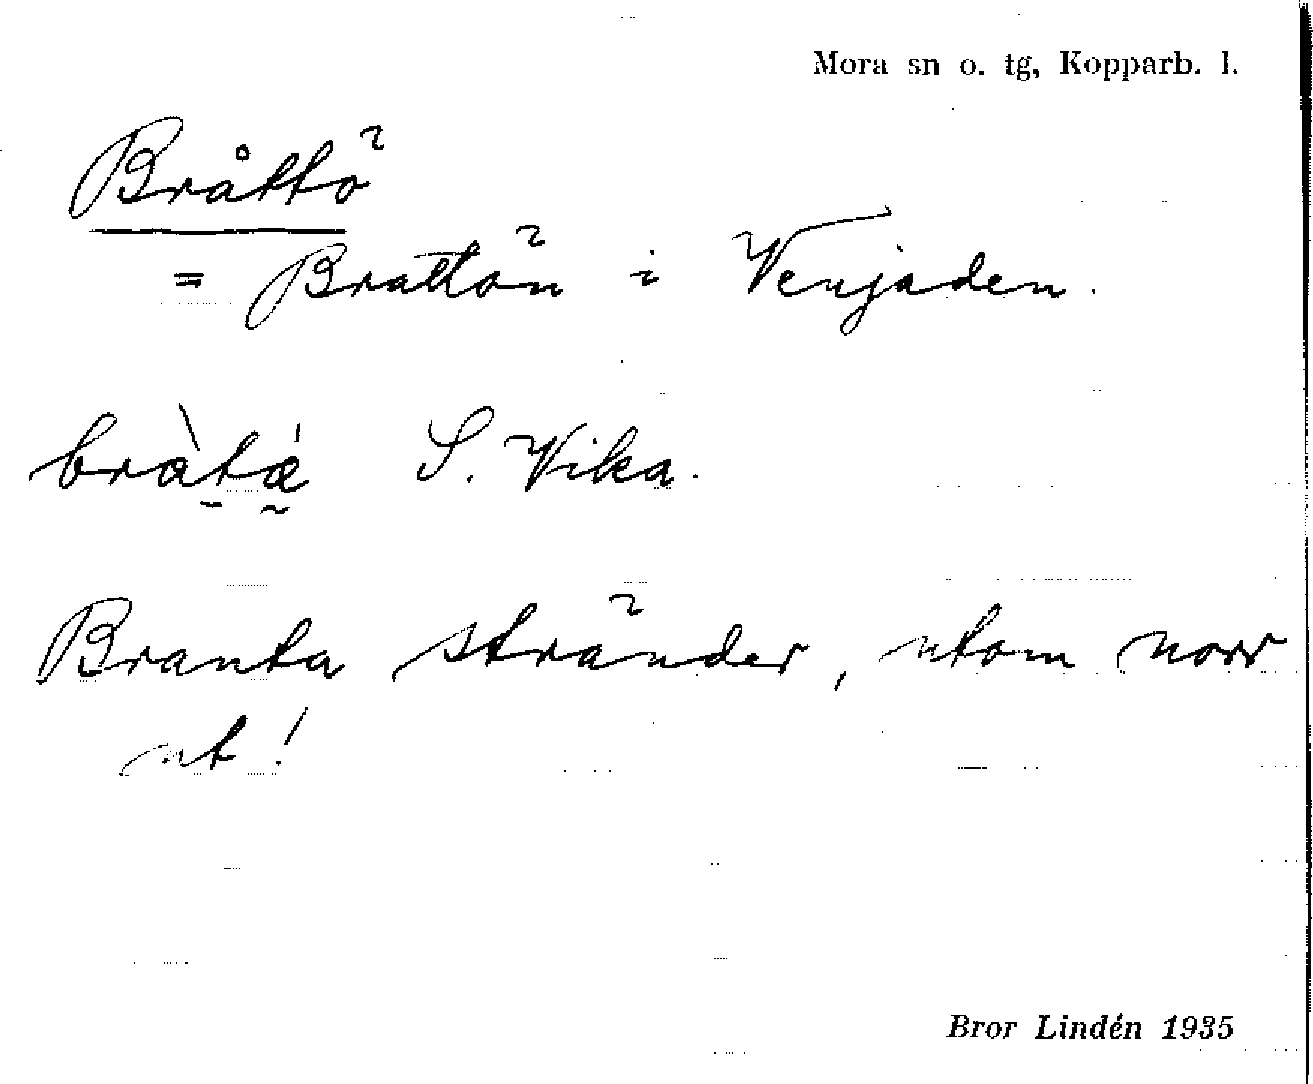 Mora sn o. tg, Kopparb. l.
Bråttö
= Brattön i Venjaden.
bràtǽ S. Vika.
Branta stränder, utom norr
ut!
Bror Lindén 1935